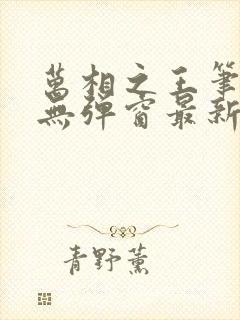 萬相之王筆
無彈窗最新
青野薰